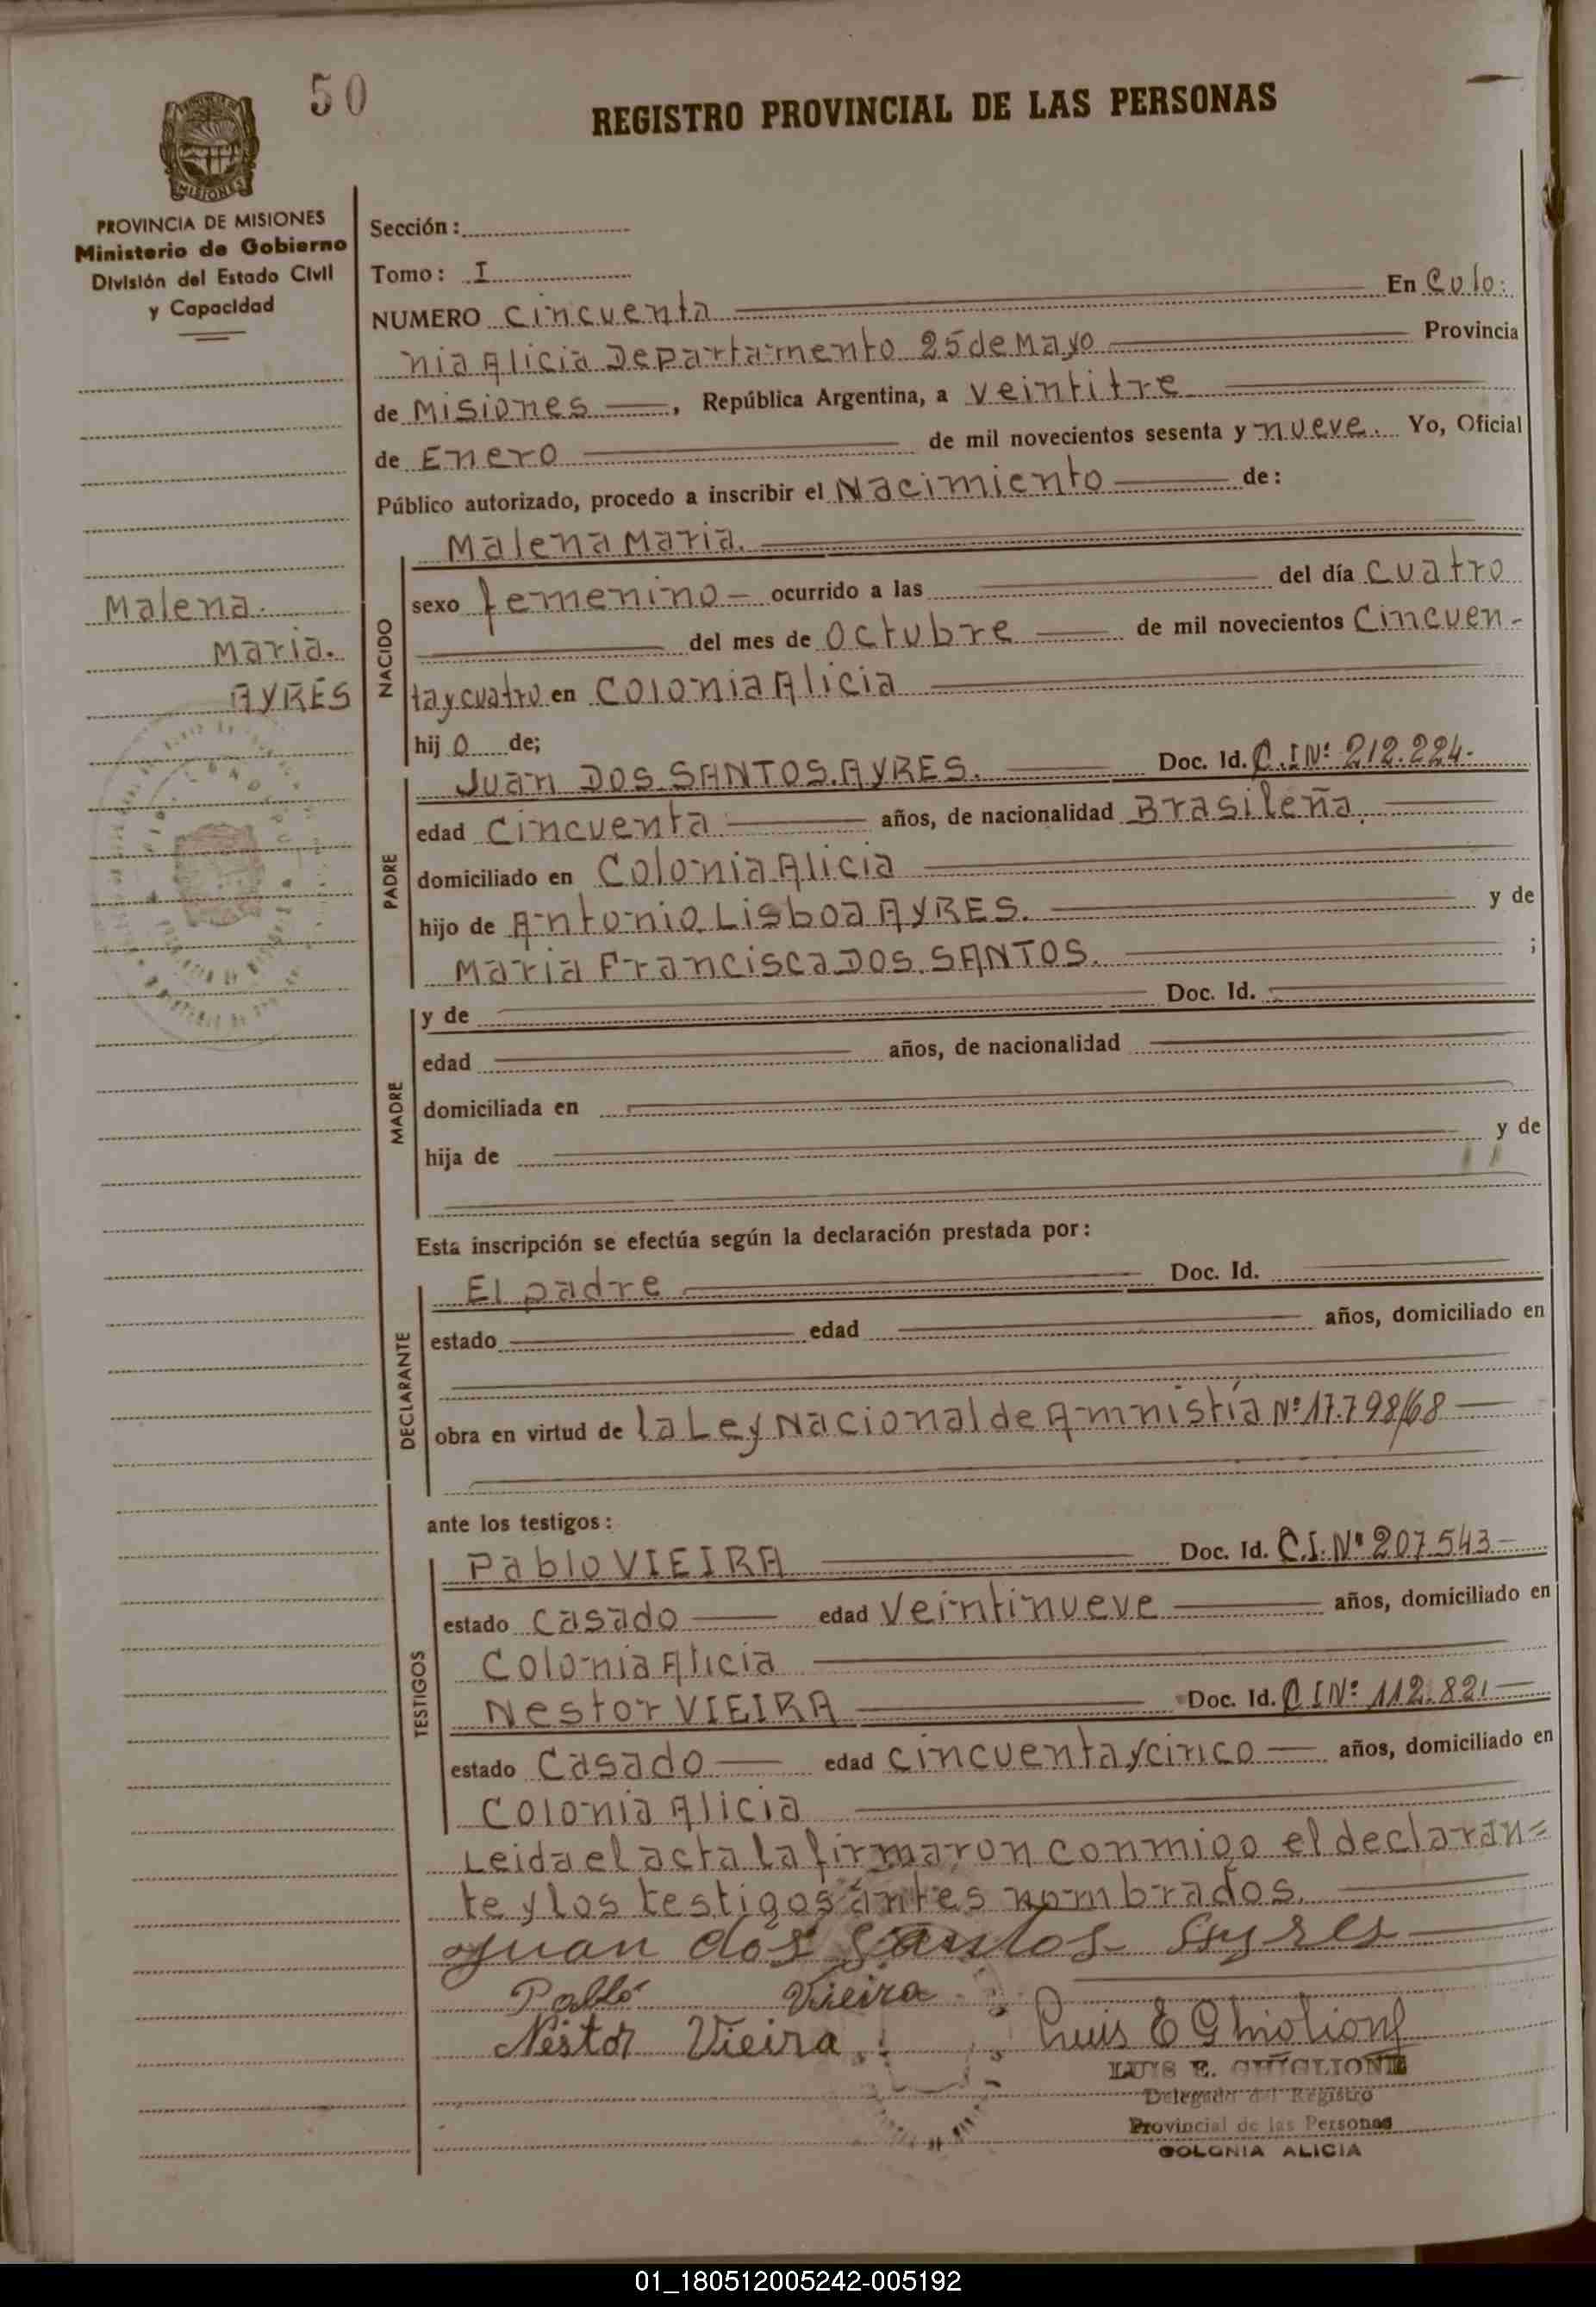 50
REGISTRO PROVINCIAL DE LAS PERSONAS
MISIONES
PROVINCIA DE MISIONES
Ministerio de Gobierno
División del Estado Civil
y Capacidad
Malena
Maria.
AYRES
Sección:
Tomo: I
NUMERO Cincuenta En Colo-
nia Alicia Departamento 25 de Mayo Provincia
de Misiones, República Argentina, a veintitre
de Enero de mil novecientos sesenta y nueve. Yo, Oficial
Público autorizado, procedo a inscribir el Nacimiento de:
NACIDO
Malena Maria.
sexo femenino - ocurrido a las del día cuatro
del mes de Octubre de mil novecientos Cincuen-
ta y cuatro en Colonia Alicia
hij o de;
PADRE
Juan DOS SANTOS AYRES. Doc. Id. C.I Nº 212.224.
edad Cincuenta años, de nacionalidad Brasileña,
domiciliado en Colonia Alicia
hijo de Antonio Lisboa AYRES. y de
Maria Francisca DOS SANTOS. ;
MADRE
y de Doc. Id.
edad años, de nacionalidad
domiciliada en
hija de y de
Esta inscripción se efectúa según la declaración prestada por:
DECLARANTE
El padre Doc. Id.
estado edad años, domiciliado en
obra en virtud de la Ley Nacional de Amnistía Nº 17.798/68
ante los testigos:
TESTIGOS
Pablo VIEIRA Doc. Id. C.I. Nº 207.543
estado Casado edad Veintinueve años, domiciliado en
Colonia Alicia
Nestor VIEIRA Doc. Id. C I Nº 112.821
estado Casado edad Cincuenta y cinco años, domiciliado en
Colonia Alicia
Leida el acta la firmaron conmigo el declaran=
te y los testigos antes nombrados.
Juan dos Santos Ayres
Pablo Vieira
Néstor Vieira. Luis E Ghiglione
LUIS E. GHIGLIONE
Delegado del Registro
Provincial de las Personas
COLONIA ALICIA
01_180512005242-005192